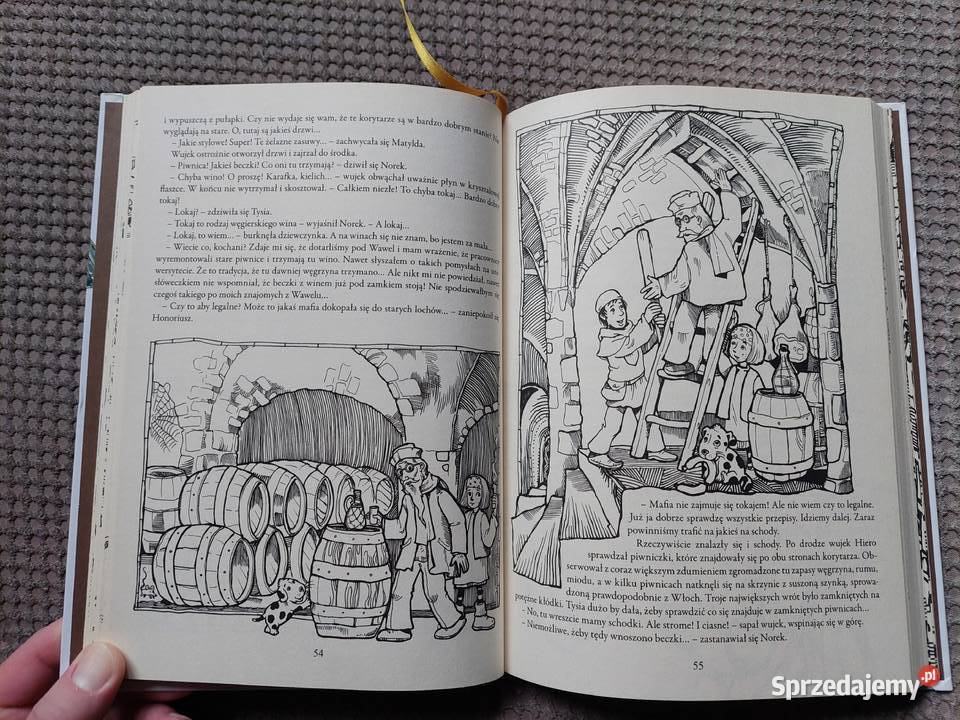 i wypuszczą z pułapki. Czy nie wydaje się wam, że te korytarze są w bardzo dobrym stanie? Nie
wyglądają na stare. O, tutaj są jakieś drzwi...
– Jakie stylowe! Super! Te żelazne zasuwy... – zachwycała się Matylda.
Wujek ostrożnie otworzył drzwi i zajrzał do środka.
– Piwnica! Jakieś beczki! Co oni tu trzymają? – dziwił się Norek.
– Chyba wino! O proszę! Karafka, kielich... – wujek obwąchał uważnie płyn w kryształowej
flaszce. W końcu nie wytrzymał i skosztował. – Całkiem niezłe! To chyba tokaj... Bardzo dobry
tokaj!
– Lokaj? – zdziwiła się Tysia.
– Tokaj to rodzaj węgierskiego wina – wyjaśnił Norek. – A lokaj...
– Lokaj, to wiem... – burknęła dziewczynka. A na winach się nie znam, bo jestem za mała...
– Wiecie co, kochani? Zdaje mi się, że dotarliśmy pod Wawel i mam wrażenie, że pracownicy
wyremontowali stare piwnice i trzymają tu wino. Nawet słyszałem o takich pomysłach na uni-
wersytecie. Że to tradycja, że tu dawniej węgrzyna trzymano... Ale nikt mi nie powiedział, nawet
słóweczkiem nie wspomniał, że beczki z winem już pod zamkiem stoją! Nie spodziewałbym się
czegoś takiego po moich znajomych z Wawelu...
– Czy to aby legalne? Może to jakaś mafia dokopała się do starych lochów... – zaniepokoił się
Honoriusz.
54
– Mafia nie zajmuje się tokajem! Ale nie wiem czy to legalne.
Już ja dobrze sprawdzę wszystkie przepisy. Idziemy dalej. Zaraz
powinniśmy trafić na jakieś na schody.
Rzeczywiście znalazły się i schody. Po drodze wujek Hiero
sprawdzał piwniczki, które znajdowały się po obu stronach korytarza. Ob-
serwował z coraz większym zdumieniem zgromadzone tu zapasy węgrzyna, rumu,
miodu, a w kilku piwnicach natknęli się na skrzynie z suszoną szynką, sprowa-
dzoną prawdopodobnie z Włoch. Troje największych wrót było zamkniętych na
potężne kłódki. Tysia dużo by dała, żeby sprawdzić co się znajduje w zamkniętych piwnicach...
– No, tu wreszcie mamy schodki. Ale strome! I ciasne! – sapał wujek, wspinając się w górę.
– Niemożliwe, żeby tędy wnoszono beczki... – zastanawiał się Norek.
55
Sprzedajemy.pl